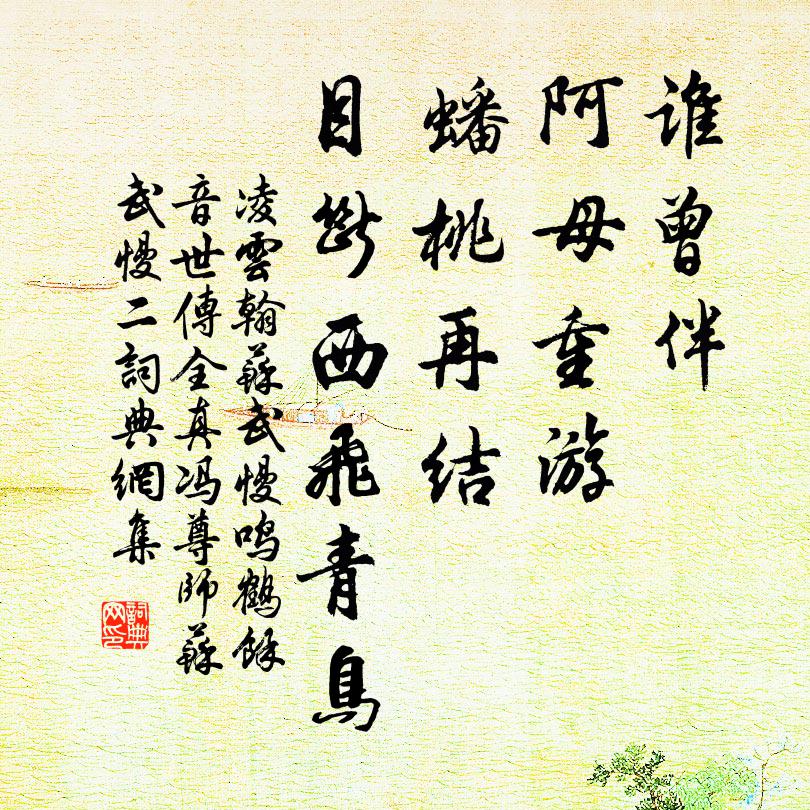 谁曾伴
阿母重游
蟠桃再结
目断西飛青鳥
凌雲翰蘇武慢鳴鶴餘
音世傳全真冯尊師蘇
武慢二詞典網集
詞典网印